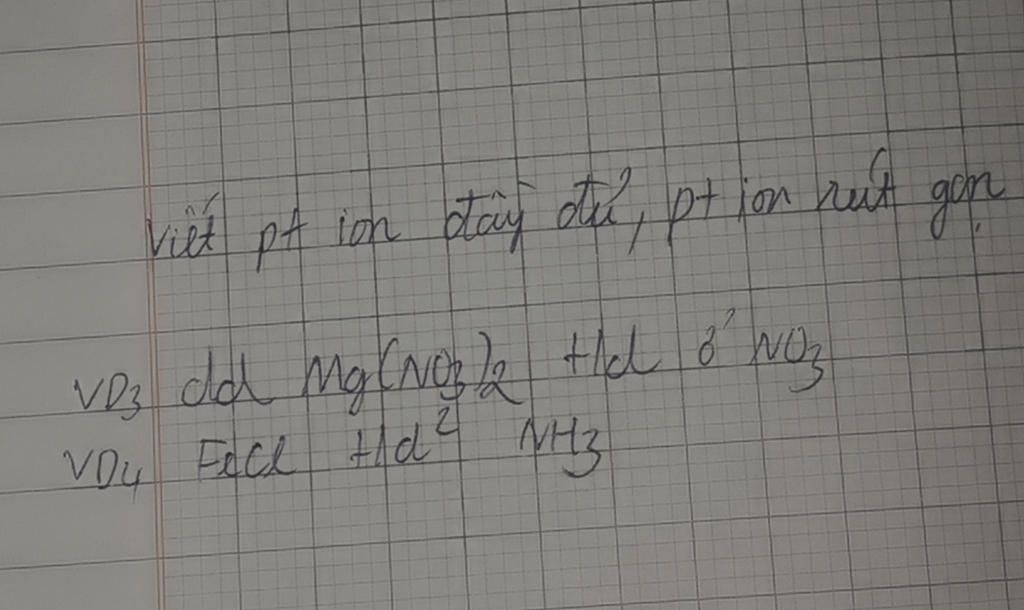 Viết pt ion đầy đủ, pt ion rút gọn
VD3 dd Mg(NO3)2 t/d ở NO3
VD4 FeCl t/d² NH3